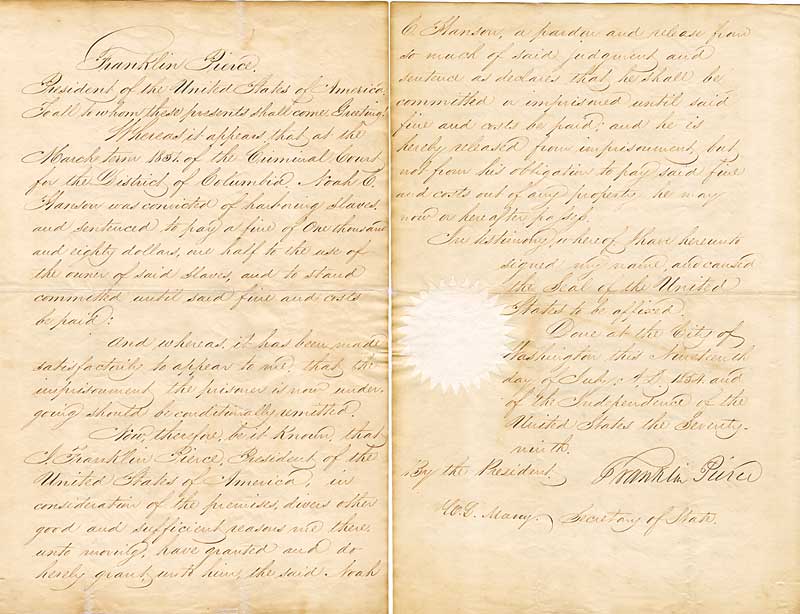 Franklin Pierce.
President of the United States of America,
To all to whom these presents shall come, Greeting:
Whereas it appears, that at the
March term 1851. of the Criminal Court
for the District of Columbia, Noah C.
Hanson was convicted of harboring slaves,
and sentenced to pay a fine of One thousand
and eighty dollars, one half to the use of
the owner of said slaves, and to stand
committed until said fine and costs
be paid:
And whereas, it has been made
satisfactorily to appear to me, that the
imprisonment the prisoner is now under-
going should be conditionally remitted.
Now, therefore, be it Known, that
I, Franklin Pierce, President of the
United States of America, in
consideration of the premises, divers other
good and sufficient reasons me there
unto moving, have granted and do
hereby grant, unto him, the said Noah
C. Hanson, a pardon and release from
so much of said judgment and
sentence as declares that he shall be
committed or imprisoned until said
fine and costs be paid; and he is
hereby released from imprisonment, but
not from his obligation to pay said fine
and costs out of any property he may
now or hereafter possess.
In testimony whereof I have hereunto
signed my name, and caused
the Seal of the United
States to be affixed.
Done at the City of
Washington this Nineteenth
day of July, A.D. 1854. and
of the Independence of the
United States the Seventy-
ninth.
By the President. Franklin Pierce
W. L. Marcy. Secretary of State.